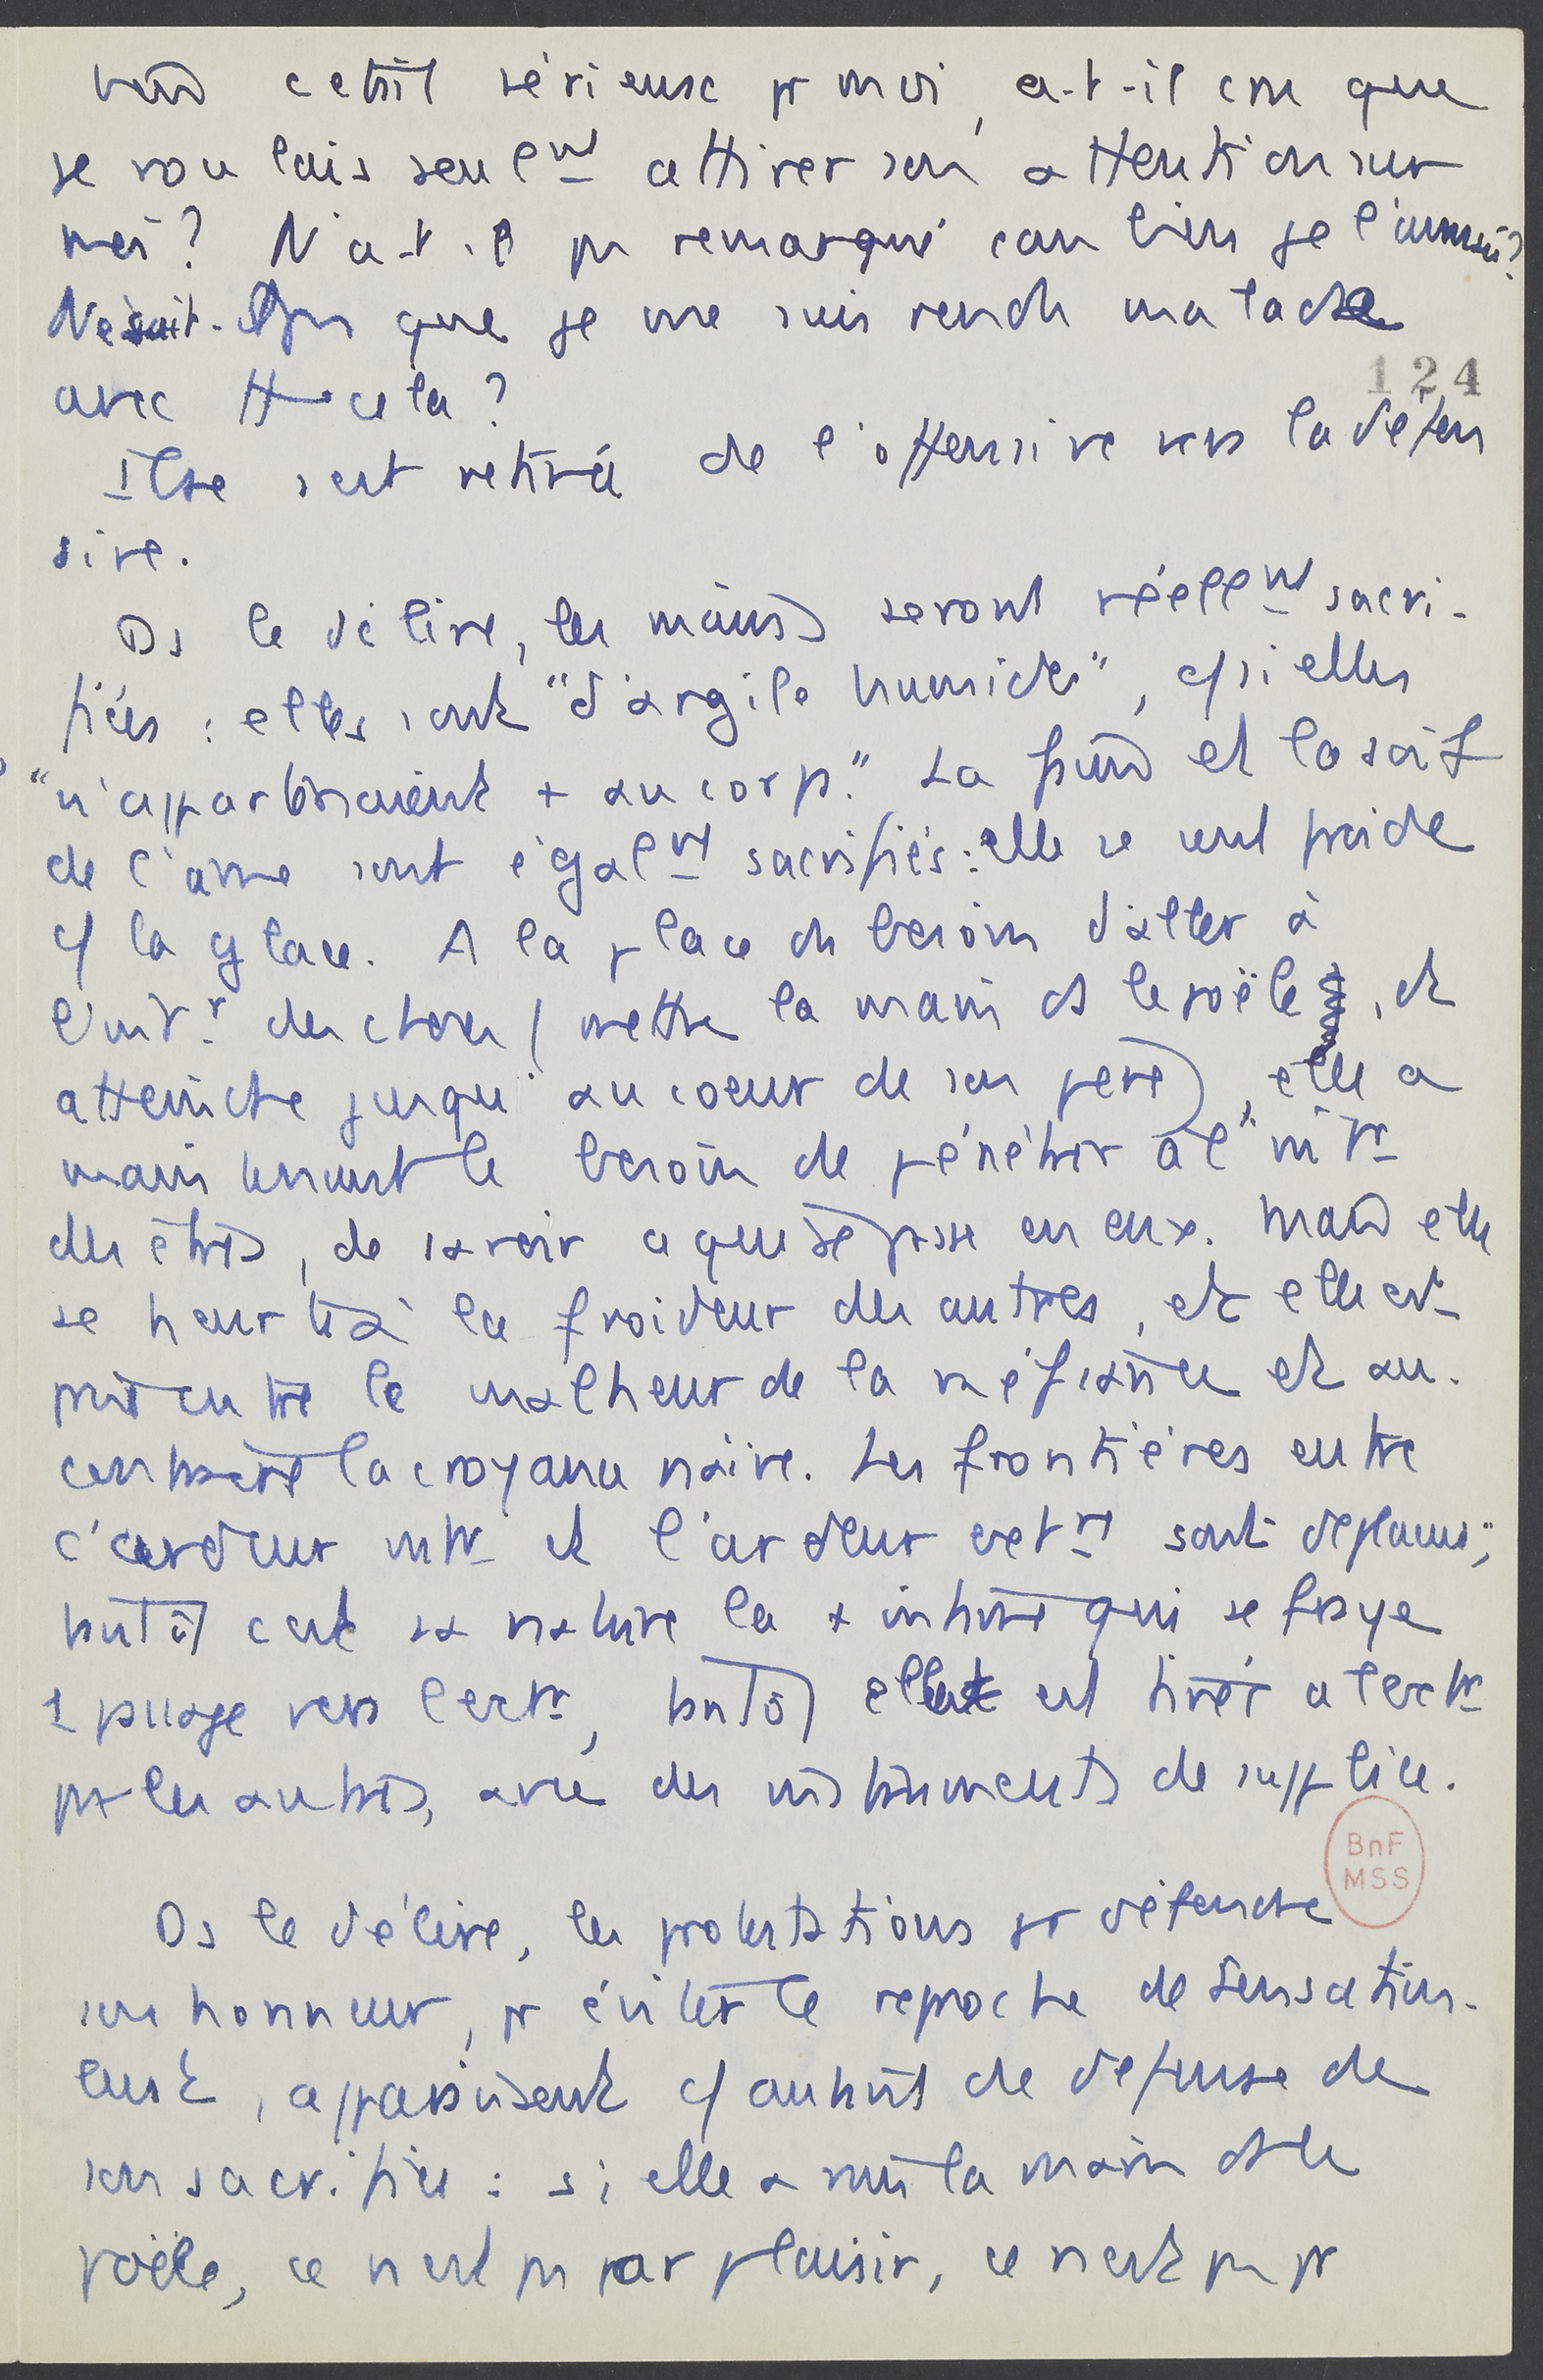 mais c'était sérieux pr moi, a-t-il cru que
je voulais seulmt attirer son attention sur
moi ? N'a-t-il pas remarqué combien je l'aimais ?
Ne sait-il pas que je me suis rendue malade
avec tt cela ?
124
Il se sent retiré de l'offensive vers la défen
sive.
Ds le délire, les mains seront réellmt sacri-
fiées : elles sont "d'argile humide", c/ si elles
"n'appartenaient + au corps." La faim et la soif
de l'âme sont égalmt sacrifiés : elle se sent froide
c/ la glace. A la place du besoin d'aller à
l'intr des choses (mettre la main ds le poële, et
atteindre jusqu'au coeur de son père), elle a
maintenant le besoin de pénétrer à l'intr
des êtres, de savoir ce qui se passe en eux. Mais elle
se heurte à la froideur des autres, et elle est
prise entre le malheur de la méfiance et au
contraire la croyance naïve. Les frontières entre
l'ardeur intr et l'ardeur extr sont déplacées ;
tantôt c'est sa nature la + intime qui se fraye
1 passage vers l'extr, tantôt elle est tirée à l'extr
par les autres, avec des instruments de supplice.
Ds le délire, les protestations pr défendre
son honneur, pr éviter le reproche de sensation-
 apparaissent c/ autant de défense de
son sacrifice : si elle a mis la main ds le
poële, ce n'est pas par plaisir, ce n'est pas pr
BnF
MSS